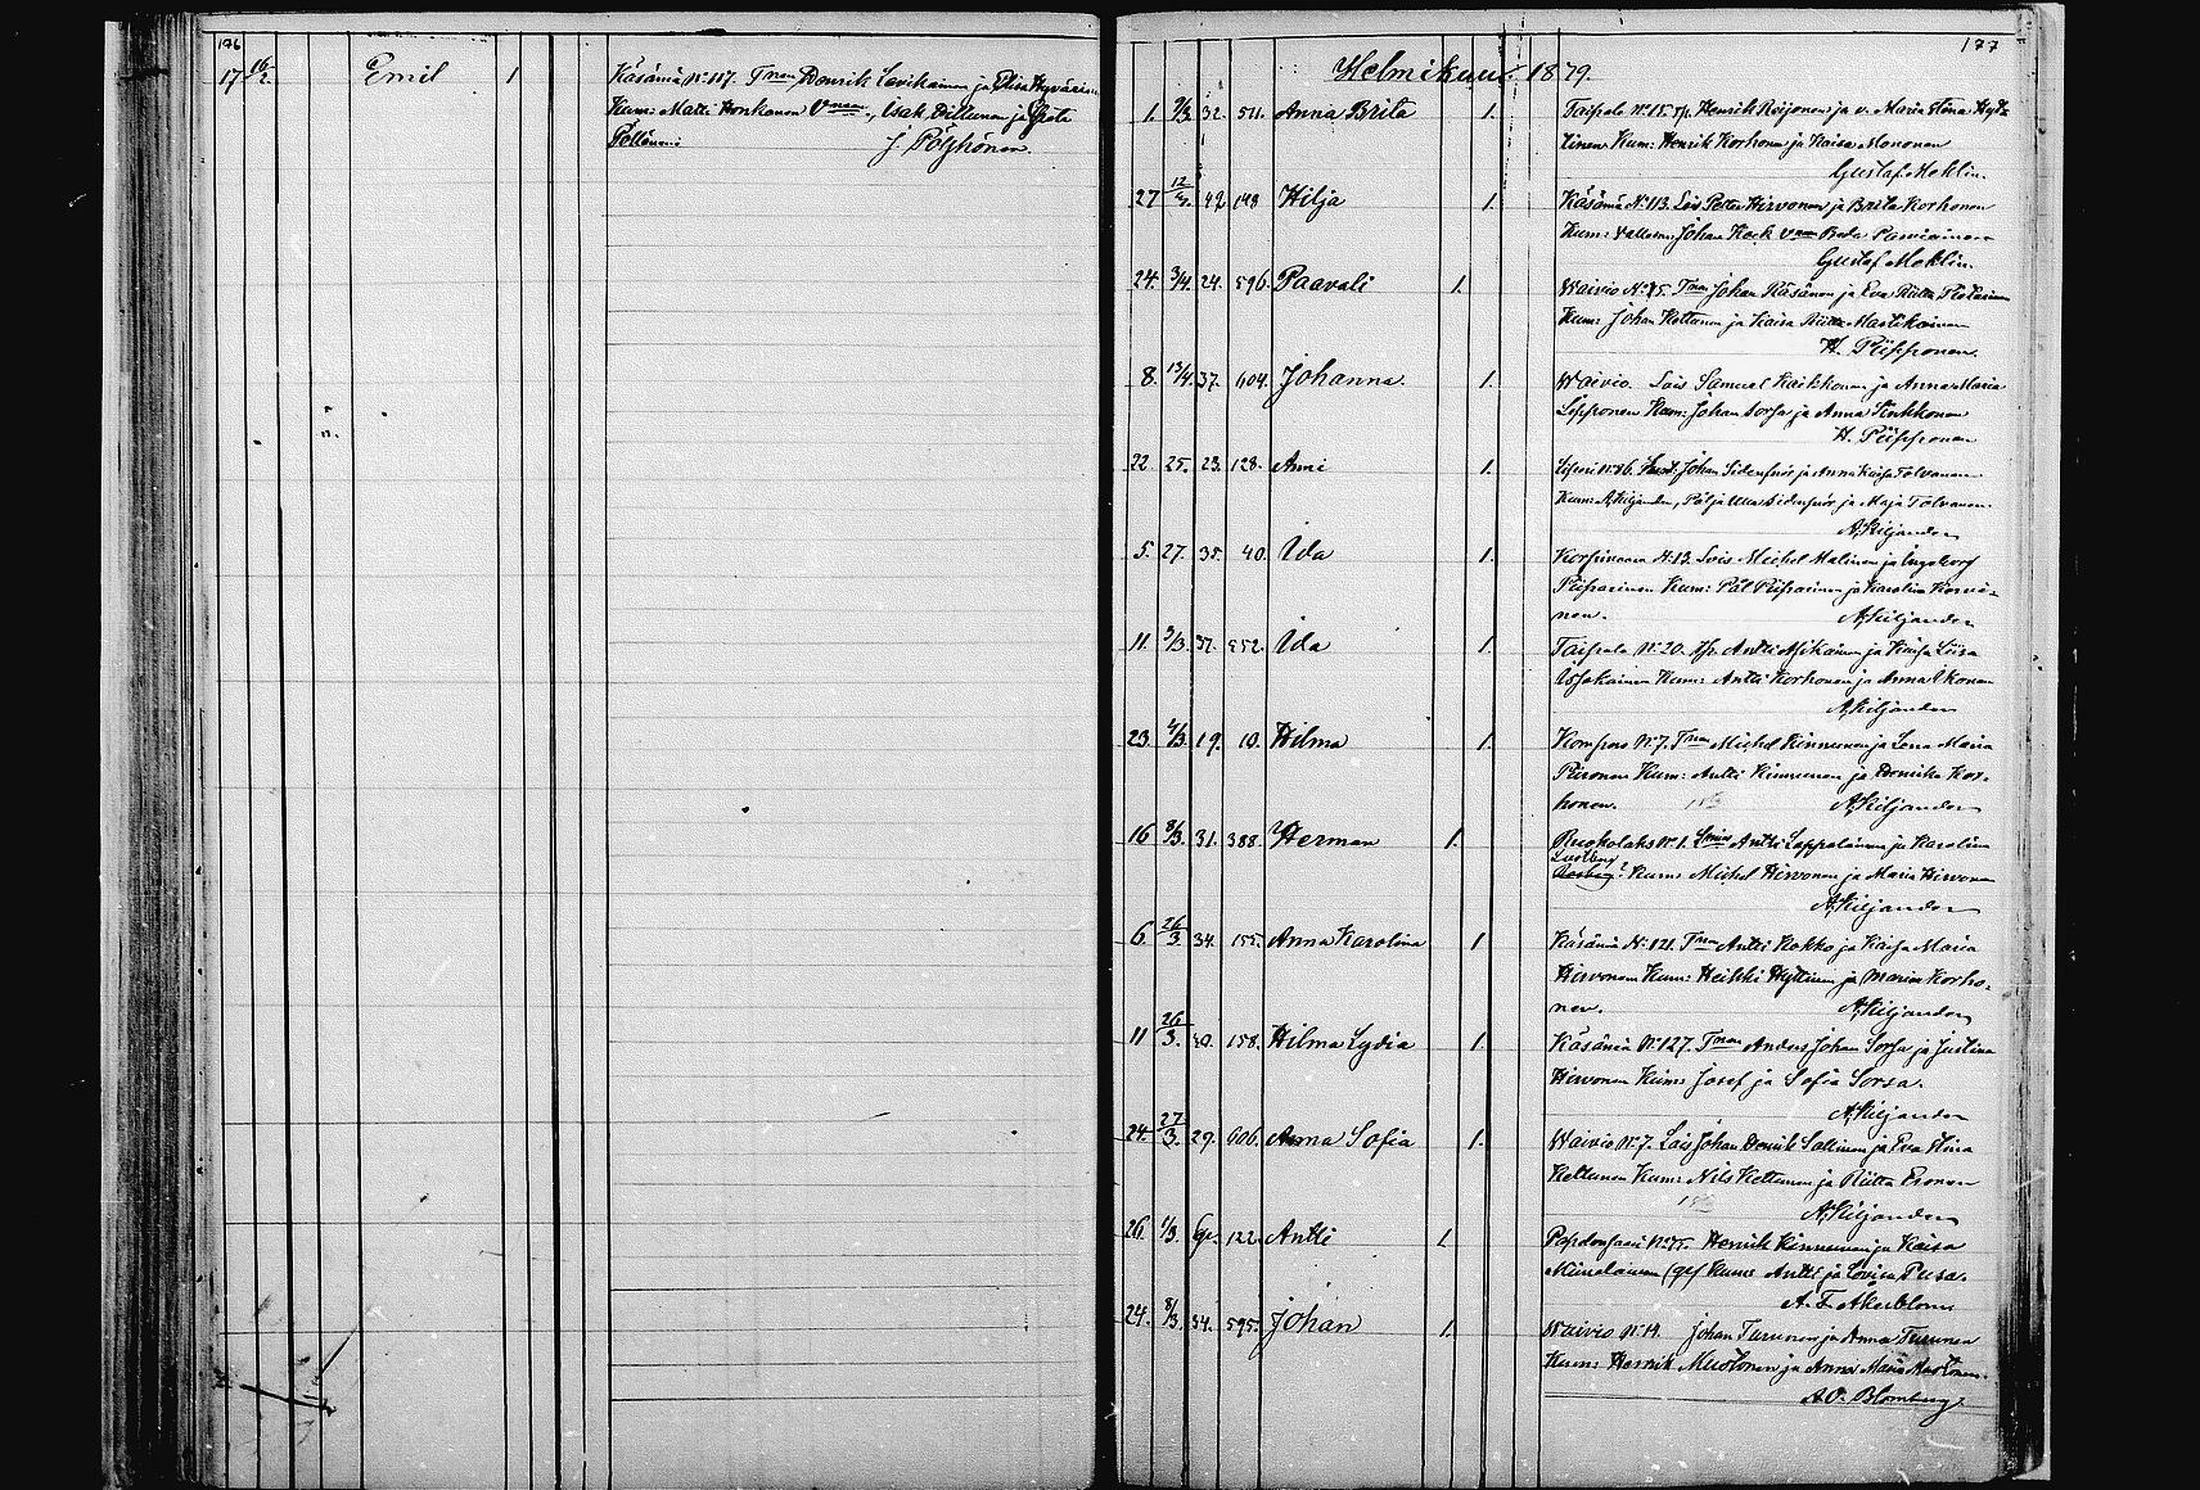 176
17 16/2. Emil 1 Käsämä No 117. Tnen Henrik Levikainen ja Elisa Hyvärinen
Kum: Matti Honkanen Vmaa, Isak Dillunen ja Greta
Pöllönen
J. Pölhönen.
177
Helmikuu 1879.
1. 9/3 32. 511. Anna Brita 1. Taipale No 15. Henrik Reijonen ja v. Maria Stina Hyt-
tinen Kum: Henrik Korhonen ja Kaisa Mononen
Gustaf Moklin.
27 12/3. 42 148 Hilja 1. Käsämä No 113. Lois Petter Hirvonen ja Brita Korhonen
Kum: Johan Kock
Gustaf Moklin.
24. 3/4. 24. 596. Paavali 1. Waivio No 15. Tnen Johan Räsänen ja Eva Riitta
Kum: Johan Kettunen ja Kaisa Riitta Mastikainen
H. Piipponen.
8. 13/4. 37. 604. Johanna. 1. Waivio. Lois Samuel Kaikkonen ja Anna Maria
Lipponen Kum: Johan Sorsa ja Anna Sinkkonen
H. Piipponen
22 25. 23. 128. Anni 1. Liperi No 86. Johan Sidensnör ja Anna Kaisa Tolvanen
Kum: A. Kiljander, Pål ja Ulla Sidensnör ja Maja Tolvanen.
A. Kiljander
5. 27. 35. 40. Ida 1. Korpivaara No 13. Lois Michel Malinen ja Ingeborg
Piiparinen Kum: Pål Piiparinen ja Karolina Korvi-
nen. A. Kiljander
11. 3/3. 37. 552. Ida 1. Taipale No 20. Antti Asikainen ja Kaisa Liisa
Kum: Antti Korhonen ja Anna Ikonen
A. Kiljander
23. 4/3. 19. 10. Hilma 1. Kompero No 7. Tnen Michel Kinnunen ja Lena Maria
Piironen Kum: Antti Kinnunen ja Domika Kor-
honen. A. Kiljander
16 8/3. 31. 388. Herman 1. Ruokolaks No 1. Antti Lappalainen ja Karolina
Lustberg
Kum: Michel Hirvonen ja Maria Hirvonen
A. Kiljander
6. 26/3 34. 155. Anna Karolina 1 Käsämä No 121. Tnen Antti Kokko ja Kaisa Maria
Hirvonen Kum: Heikki Hyttinen ja Maria Korho-
nen. A. Kiljander
11 26/3. 40. 158. Hilma Lydia 1. Käsämä No 127. Tnen Anders Johan Sorsa ja Justina
Hirvonen Kum: Josef ja Sofia Sorsa.
A. Kiljander
24. 27/3. 29. 606. Anna Sofia 1. Waivio No 7. Lois Johan Henrik Sallinen ja Eva Stina
Kettunen Kum: Nils Kettunen ja Riitta Eronen
A. Kiljander
26. 1/3. 122. Antti 1. Henrik Kinnunen ja Kaisa
Kum: Antti ja Lovisa Pusa.
A. F. Åkerblom
24. 8/3. 34. 595. Johan 1. Waivio No 14. Johan Turunen ja Anna Turunen
Kum: Henrik Mustonen ja Anna Maria Mustonen.
A. O. Blomberg.